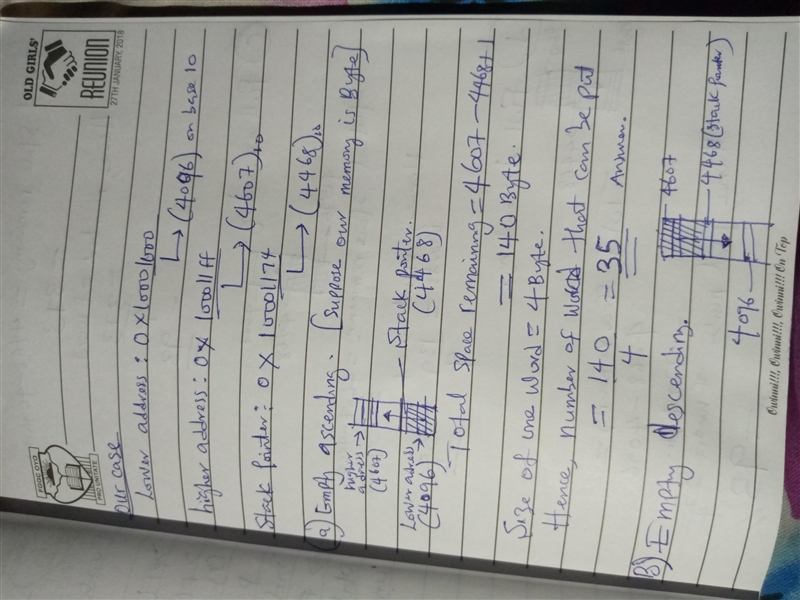 OLD GIRLS'
REUNION
27TH JANUARY, 2018
Our case
Lower address : 0x10001000
↳ (4096) on base 10
higher address : 0x100011ff
↳ (4607)10
Stack Pointer : 0x10001174
↳ (4468)10
(a) Empty ascending. [Suppose our memory is Byte]
higher
adress →
(4607)
Lower adress →
(4096)
Stack pointer.
(4468)
Total space remaining = 4607 - 4468 + 1
= 140 Byte.
Size of one Word = 4 Byte.
Hence, number of Word that can be put
= 140 = 35 Answer.
4
B) Empty Descending.
4607
4468 (Stack Pointer)
4096
Owinni!!!, Owinni!!!, Owinni!!! On Top